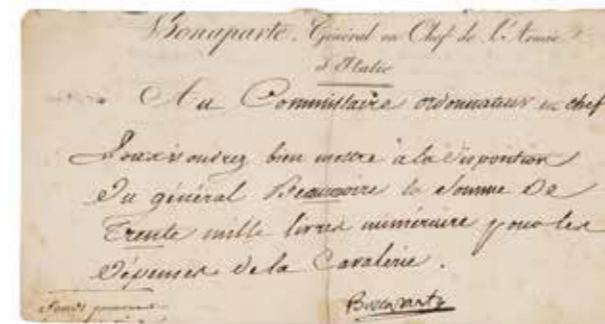 Bonaparte, Général en Chef de l'Armée
d'Italie
Au Commissaire ordonnateur en chef
Vous voudrez bien mettre à la disposition
Du général Beaumoire la Somme De
Trente mille livres numéraire pour les
Dépenses de la Cavalerie.
Bonaparte